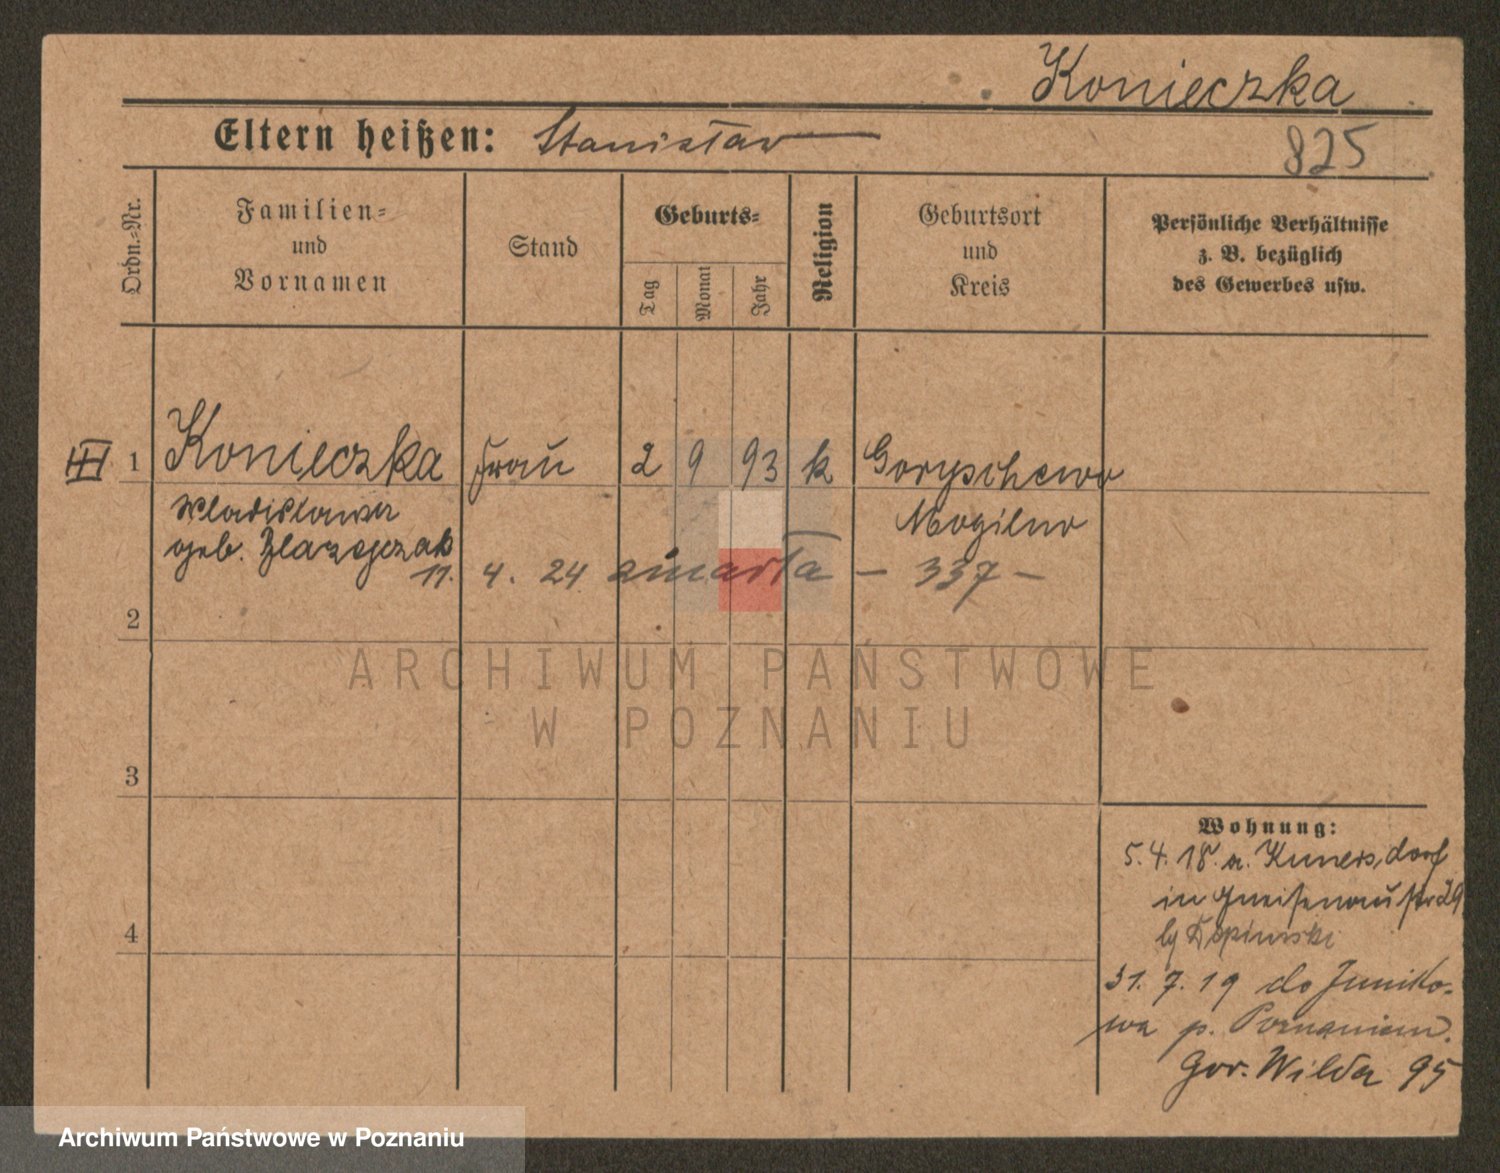 Konieczka
Eltern heißen: Stanisław
825
Ordn.-Nr.
Familien-
und
Vornamen
Stand
Geburts-
Tag
Monat
Jahr
Religion
Geburtsort
und
Kreis
Persönliche Verhältnisse
z. B. bezüglich
des Gewerbes usw.
III 1 Konieczka Frau 2 9 93 k Goryschewo
Wladislawa Mogilno
geb. Blazejczak
11. 4. 24 zmarła – 337 –
2
ARCHIWUM PAŃSTWOWE
W POZNANIU
3
4
Wohnung:
5. 4. 18. a. Kunersdorf
in Gneisenaustr 29
31. 7. 19 do Juniko-
wa p. Poznaniem.
Gór. Wilda 95
Archiwum Państwowe w Poznaniu